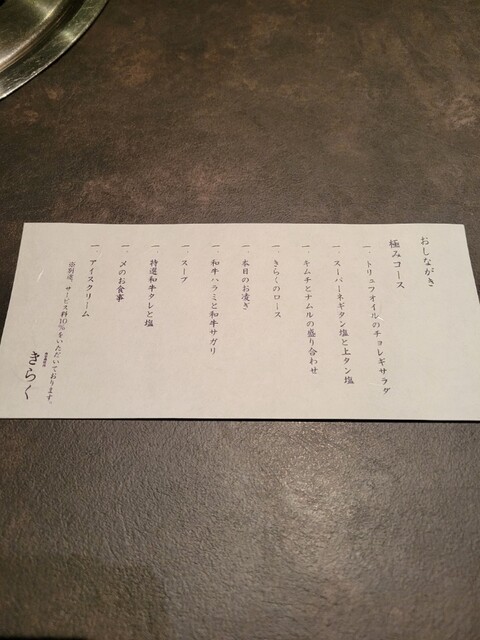 おしながき
極みコース
一、トリュフオイルのチョレギサラダ
一、スーパーネギタン塩と上タン塩
一、キムチとナムルの盛り合わせ
一、きらくのロース
一、本日のお凌ぎ
一、和牛ハラミと和牛サガリ
一、スープ
一、特選和牛タレと塩
一、〆のお食事
一、アイスクリーム
※別途、サービス料10%をいただいております。
きらく